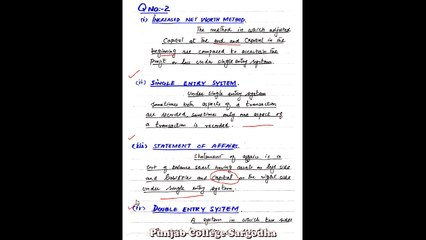 Q No:-2
(i) INCREASED NET WORTH METHOD.
The method in which adjusted
Capital at the end and Capital in the
beginning are compared to ascertain the
Profit or loss under single entry system.
(ii) SINGLE ENTRY SYSTEM.
Under single entry system
sometimes both aspects of a transaction
are recorded, sometimes only one aspect of
a transaction is recorded.
(iii) STATEMENT OF AFFAIRS.
Statement of affairs is a
sort of balance sheet having assets on left side
and liabilities and Capital on the right side
under single entry system.
(iv) DOUBLE ENTRY SYSTEM.
A system in which two sides
Punjab College Sargodha